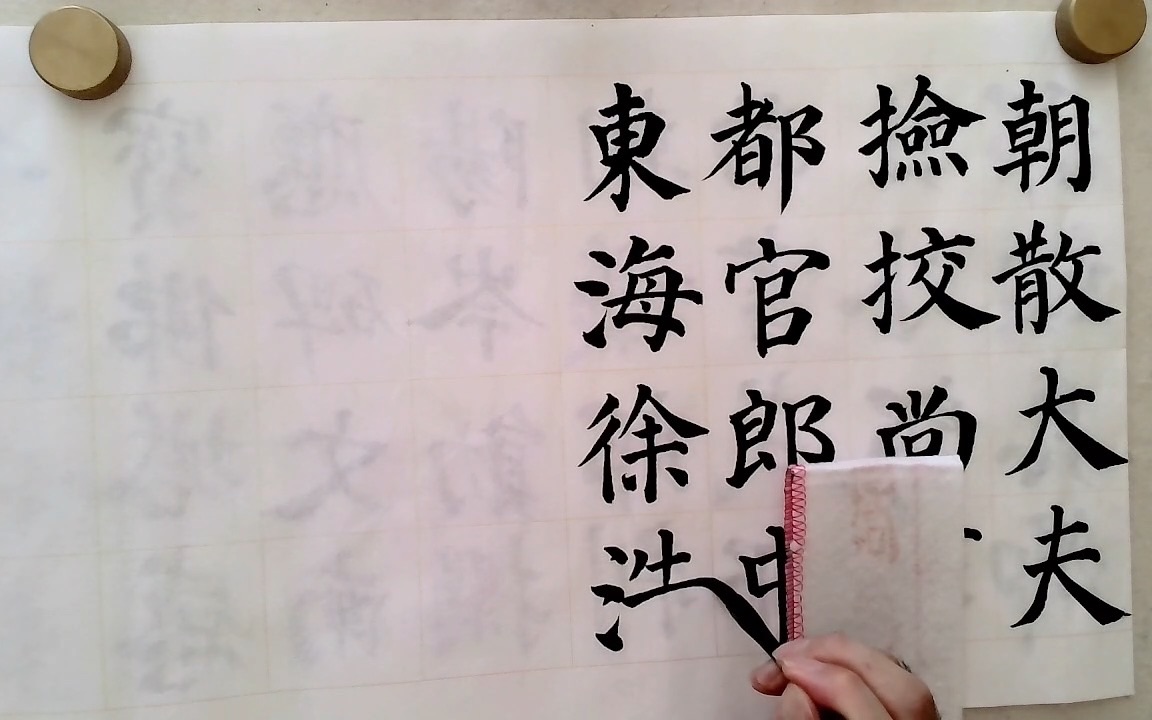 朝散大夫
撿挍尚
都官郎中
東海徐